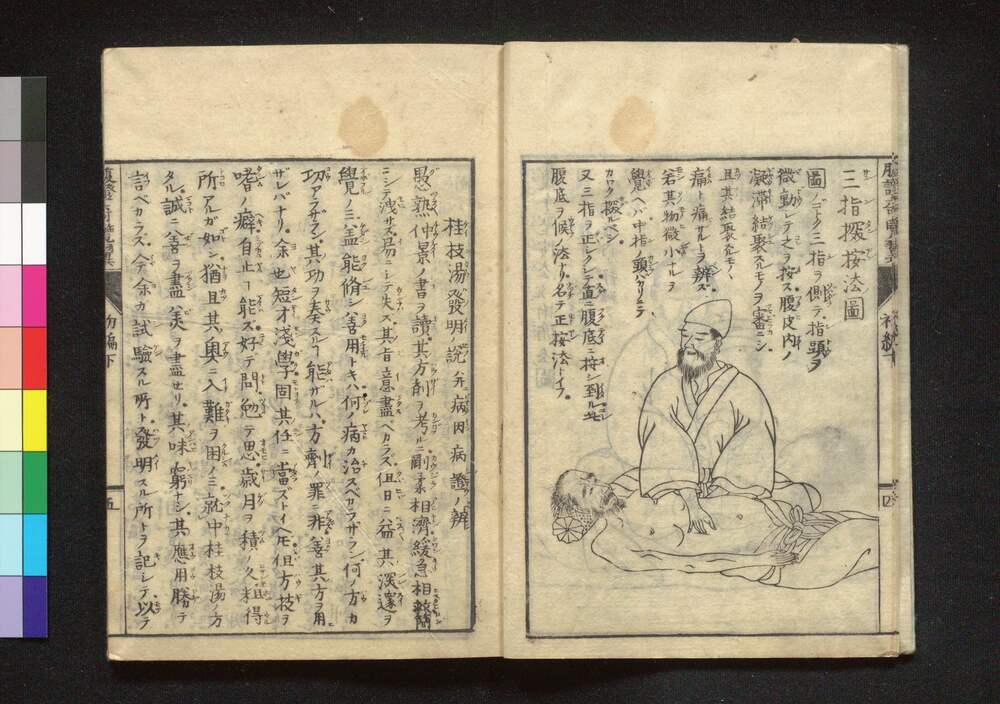 三指探按法圖
圖ノゴトク三指ヲ側テ、指頭ヲ
微動シテ之ヲ按ス、腹皮内ノ
凝滞結聚スルモノヲ審ニシ、
且其結聚スルモノハ、
痛ト痛サルヲ辨ズ、
若其物微小ナルヲ
覺ヘバ、中指ノ頭バカリニテ
カロク探ルベシ、
又三指ヲ正シクシテ、直ニ腹底ニ按シ到ル、
腹底ヲ候フ法ナリ、名テ正按法トイフ、
四
桂枝湯發明説 并病因病證ノ辨
愚熟仲景ノ書ヲ讀、其方劑ヲ考ルニ、剛柔相濟、緩急相
ニシテ洩サズ、易ニシテ失ス、其旨意盡ベカラス、但日ニ益其深邃ヲ
覺ノミ、盖能脩シ善用トキハ、何ノ病カ治スベカラザラン、何ノ方カ
功アラザラン、其功ヲ奏スルヿ能ザルハ、方劑ノ罪ニ非、善其方ヲ用
ザレバナリ、余也短才淺學、固其任ニ當ズトイヘ𪜈、但方技ヲ
嗜ノ癖、自止ヿ能ズ、好テ問、勉テ思、歳月ヲ積ノ久、粗得
所アルガ如シ、猶且其奥ニ入難ヲ困ノミ、就中桂枝湯ノ方
タル、誠ニ善ヲ盡、美ヲ盡セリ、其味窮ナシ、其應用勝テ
言ベカラス、今余カ試驗スル所ト、發明スル所トヲ記シテ、以テ
五